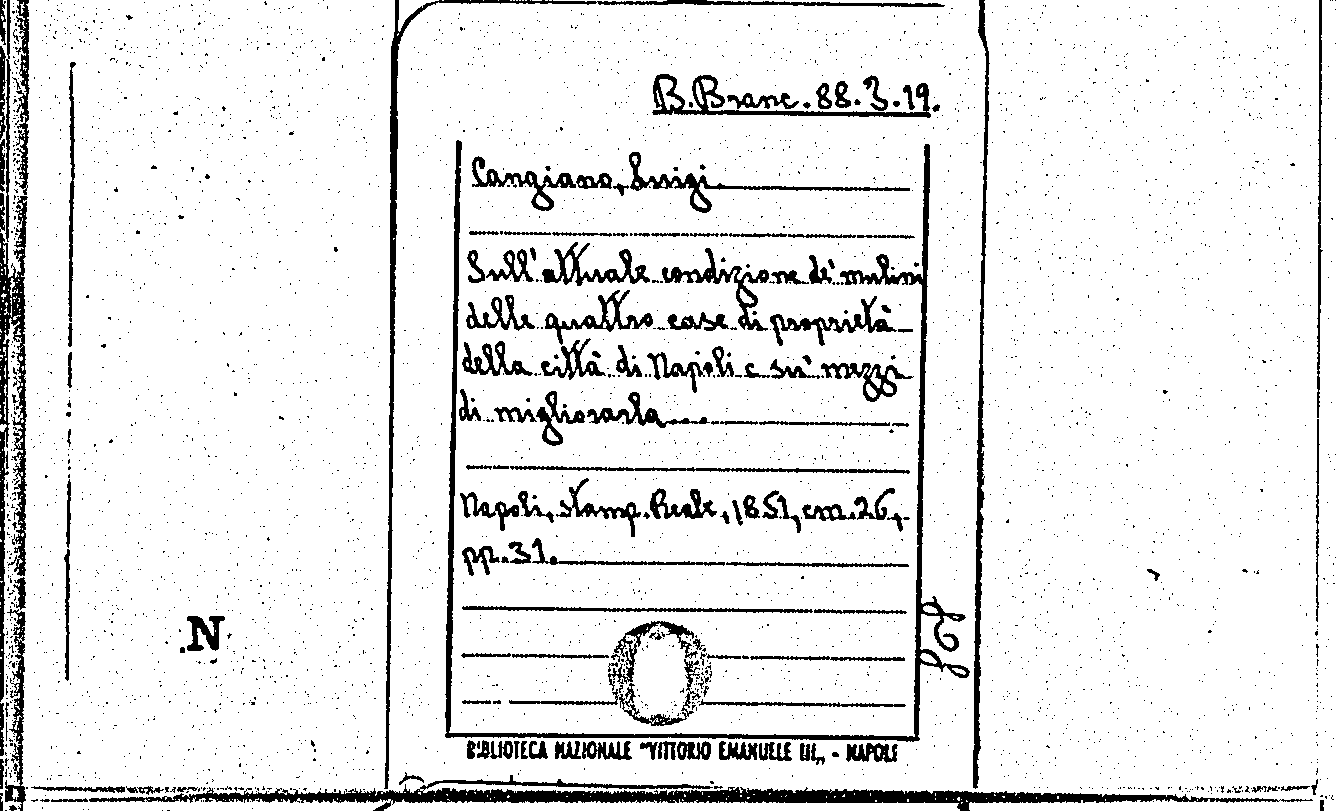 B. Branc. 88.3.19.
Cangiano, Luigi.
Sull'attuale condizione de' mulini
delle quattro case di proprietà
della città di Napoli e su' mezzi
di migliorarla....
Napoli, stamp. Reale, 1851, cm. 26,
pp. 31.
N
BIBLIOTECA NAZIONALE "VITTORIO EMANUELE III„ - NAPOLI